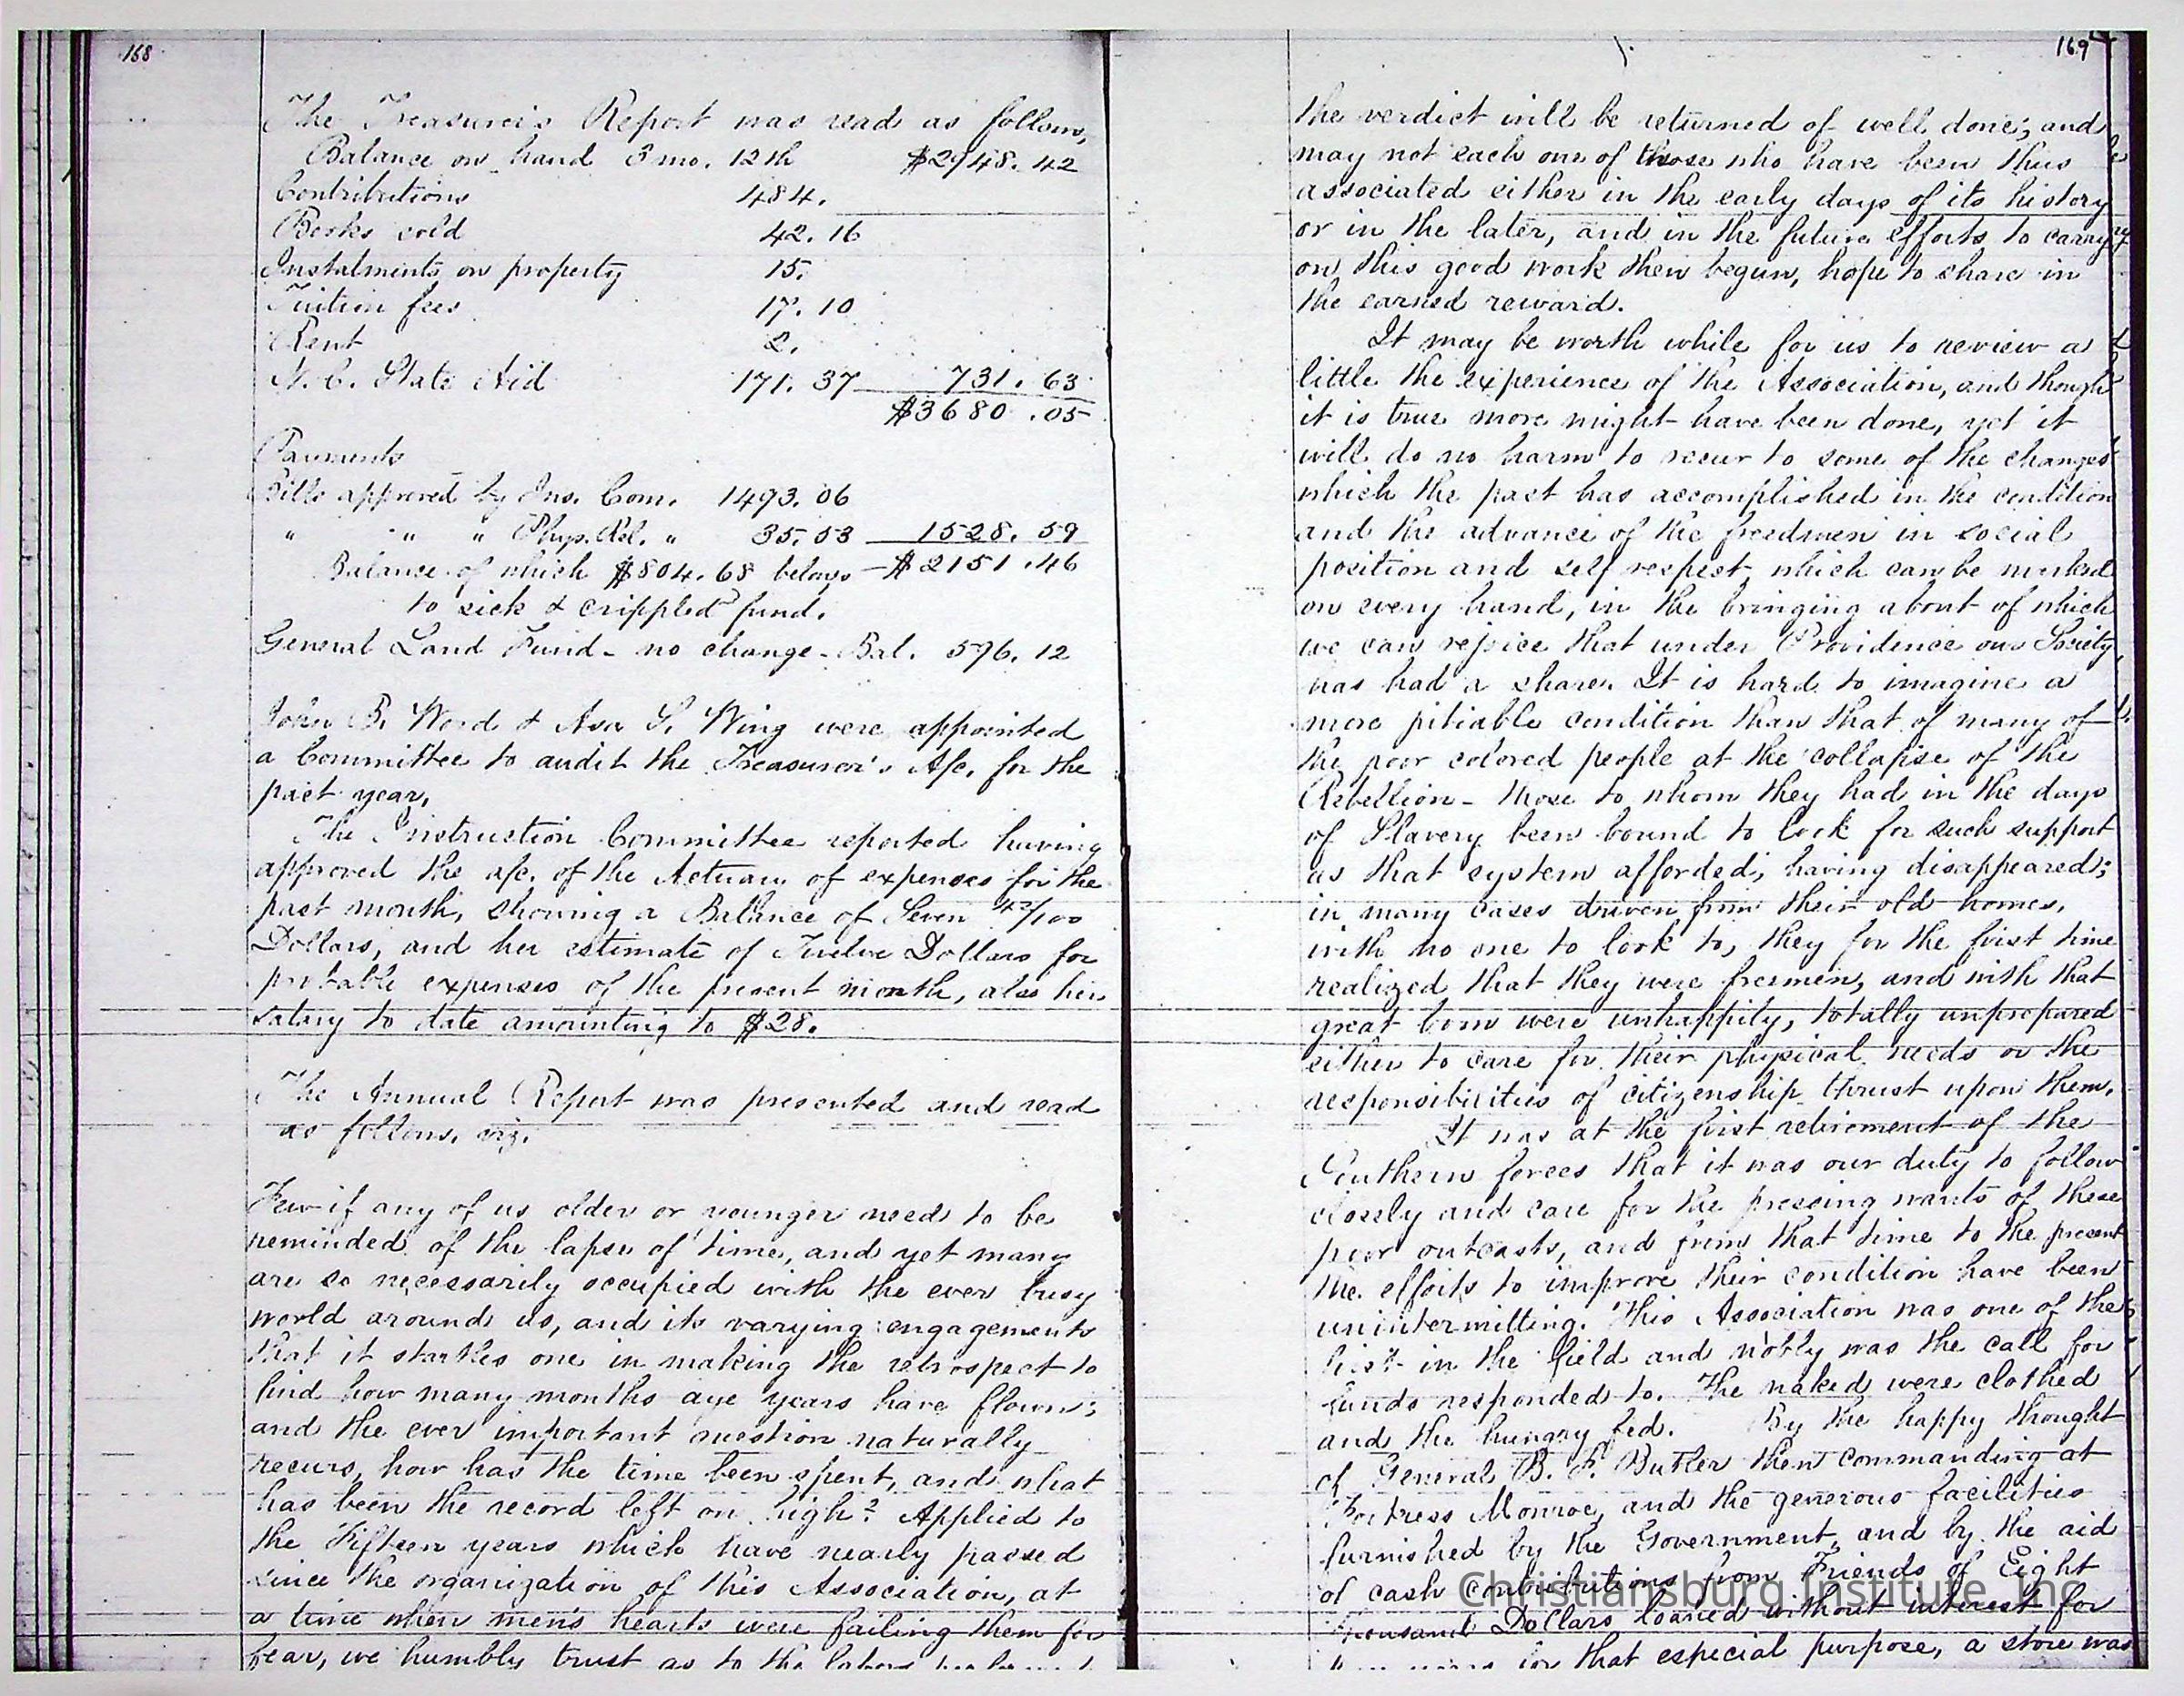 168
The Treasurer's Report was read as follows,
Balance on hand 3 mo. 12th $2948.42
Contributions 484.
Books sold 42.16
Instalments on property 15.
Tuition fees 17.10
Rent 2.
N.C. State Aid 171.37 731.63
$3680.05
Payments
Bills approved by Ins. Com. 1493.06
" " " Phys. Rel. " 35.53 1528.59
Balance of which $804.68 belongs - $2151.46
to sick & crippled fund.
General Land Fund - no change - Bal. 596.12
John B. Wood & Asa S. Wing were appointed
a Committee to audit the Treasurer's A/c. for the
past year.
The Instruction Committee reported having
approved the a/c. of the Actuary of expenses for the
past month, showing a Balance of Seven 43/100
Dollars, and her estimate of Twelve Dollars for
probable expenses of the present month, also her
salary to date amounting to $28.
The Annual Report was presented and read
as follows, viz.
Few if any of us older or younger need to be
reminded of the lapse of time, and yet many
are so necessarily occupied with the ever busy
world around us, and its varying engagements
that it startles one in making the retrospect to
find how many months aye years have flown;
and the ever important question naturally
recurs, how has the time been spent, and what
has been the record left on high? Applied to
the Fifteen years which have nearly passed
since the organization of this Association, at
a time when men's hearts were failing them for
fear, we humbly trust as to the labors
169
the verdict will be returned of well done; and
may not each one of those who have been thus
associated either in the early days of its history
or in the later, and in the future efforts to carry
on this good work then begun, hope to share in
the earned reward.
It may be worth while for us to review a
little the experience of the Association, and though
it is true more might have been done, yet it
will do no harm to recur to some of the changes
which the past has accomplished in the condition
and the advance of the freedmen in social
position and self respect which can be marked
on every hand, in the bringing about of which
we can rejoice that under Providence our Society
has had a share. It is hard to imagine a
more pitiable condition than that of many of
the poor colored people at the collapse of the
Rebellion - those to whom they had in the days
of Slavery been bound to look for such support
as that system afforded, having disappeared;
in many cases driven from their old homes,
with no one to look to, they for the first time
realized that they were freemen, and with that
great boon were unhappily, totally unprepared
either to care for their physical needs or the
responsibilities of citizenship thrust upon them.
It was at the first retirement of the
Southern forces that it was our duty to follow
closely and care for the pressing wants of these
poor outcasts, and from that time to the present
the efforts to improve their condition have been
unintermitting. This Association was one of the
first in the field and nobly was the call for
funds responded to. The naked were clothed
and the hungry fed. By the happy thought
of General B. F. Butler then commanding at
Fortress Monroe, and the generous facilities
furnished by the Government, and by the aid
of cash contributions from Friends of Eight
Thousand Dollars loaned without interest for
for that especial purpose, a store was
Christiansburg Institute, Inc.